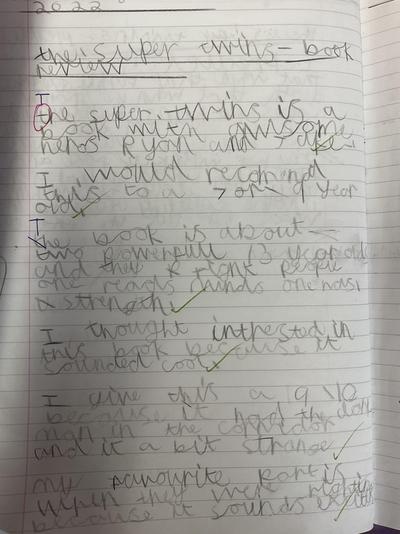 2022
the super twins - book
review
The super twins is a
book with awsome
heros Ryan and
I would recomend
this to a 7 or 9 year
old
The book is about
two powerfull 13 year old
and they R plant people
one reads minds one has
strength
I thought inthrested in
this book because it
sounded cool
I give this a 9 \10
because it had the
man in the corridor
and it a bit strange
my favourite part is
when they were
because it sounds